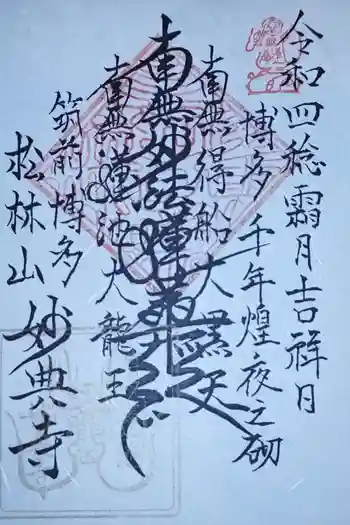 令和四稔霜月吉祥日
博多千年煌夜之砌
南無得船大黒天
南無妙法蓮華経
南無蓮池大龍王
筑前博多
松林山 妙典寺